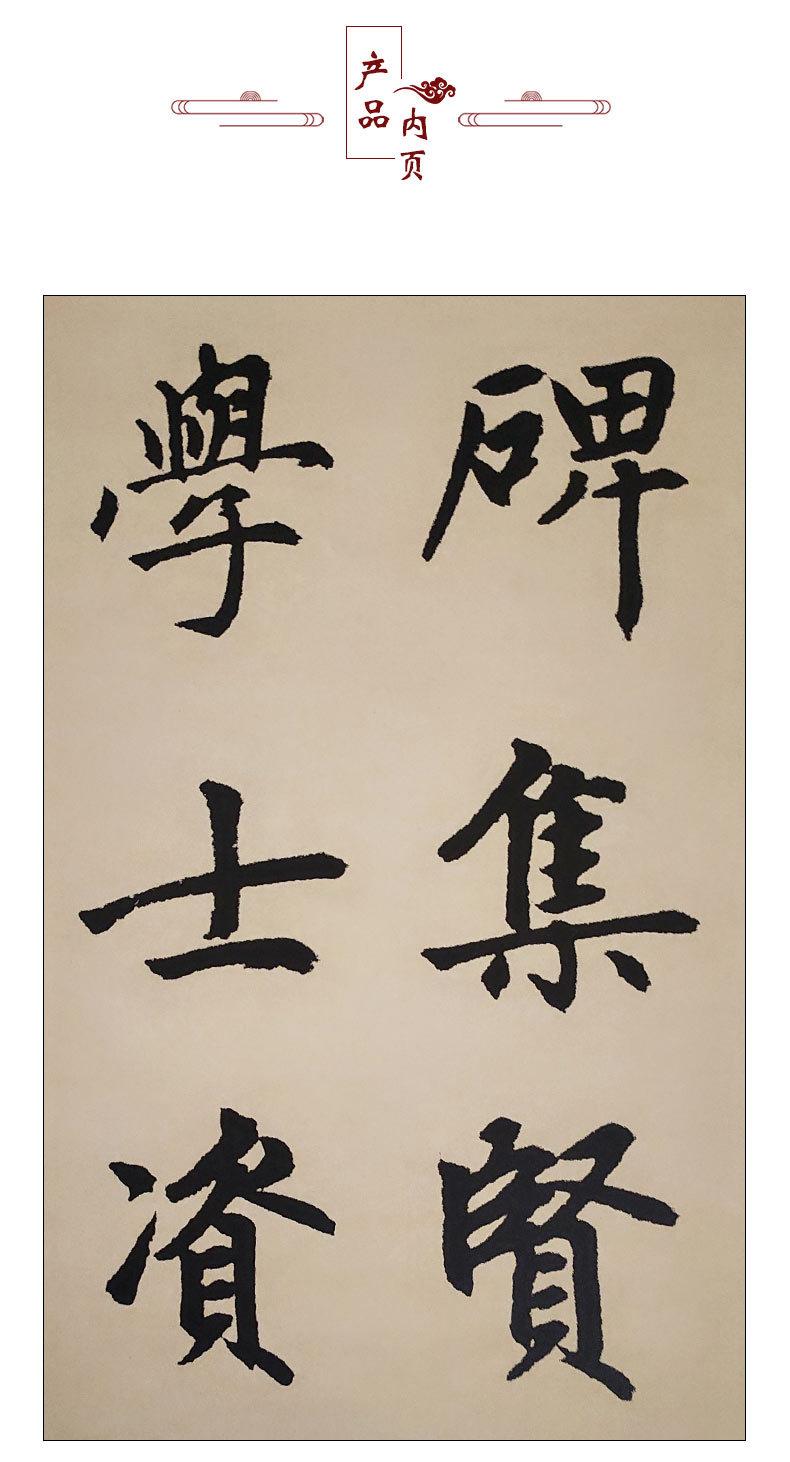 产品
内页
碑集賢
學士資